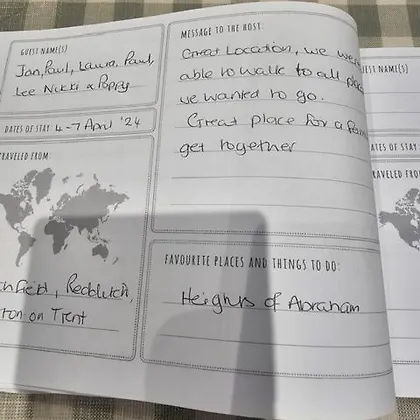 GUEST NAME(S)
Jan, Paul, Laura, Paul,
Lee Nikki & Poppy
DATES OF STAY 4-7 April '24
TRAVELED FROM:
Redditch,
on Trent
MESSAGE TO THE HOST:
Great Location, we were
able to walk to all
we wanted to go.
Great place for a
get together
FAVOURITE PLACES AND THINGS TO DO:
Heights of Abraham
GUEST NAME(S)
DATES OF STAY
TRAVELED FROM